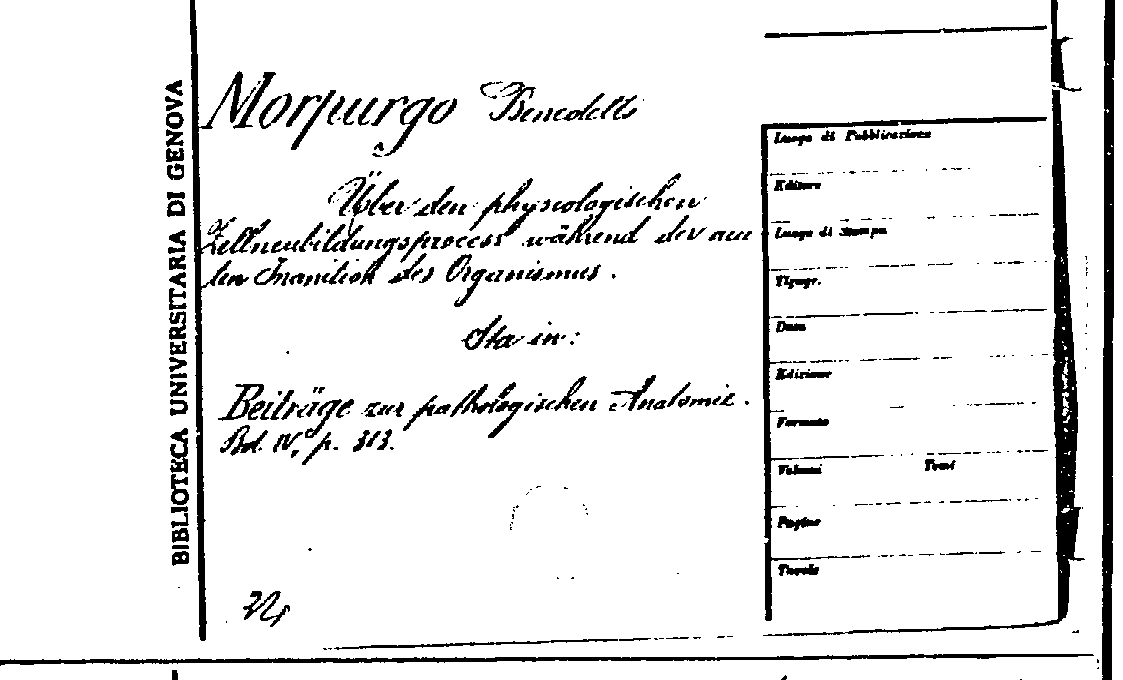 BIBLIOTECA UNIVERSITARIA DI GENOVA
Morpurgo Benedetto
Über den physiologischen
Zellneubildungsprocess während der acu
ten Inanition des Organismus.
Sta in:
Beiträge zur pathologischen Anatomie.
Bd. IV, p. 313.
Luogo di Pubblicazione
Editore
Luogo di Stampa
Tipogr.
Data
Edizione
Formato
Volumi Tomi
Pagine
Tavole